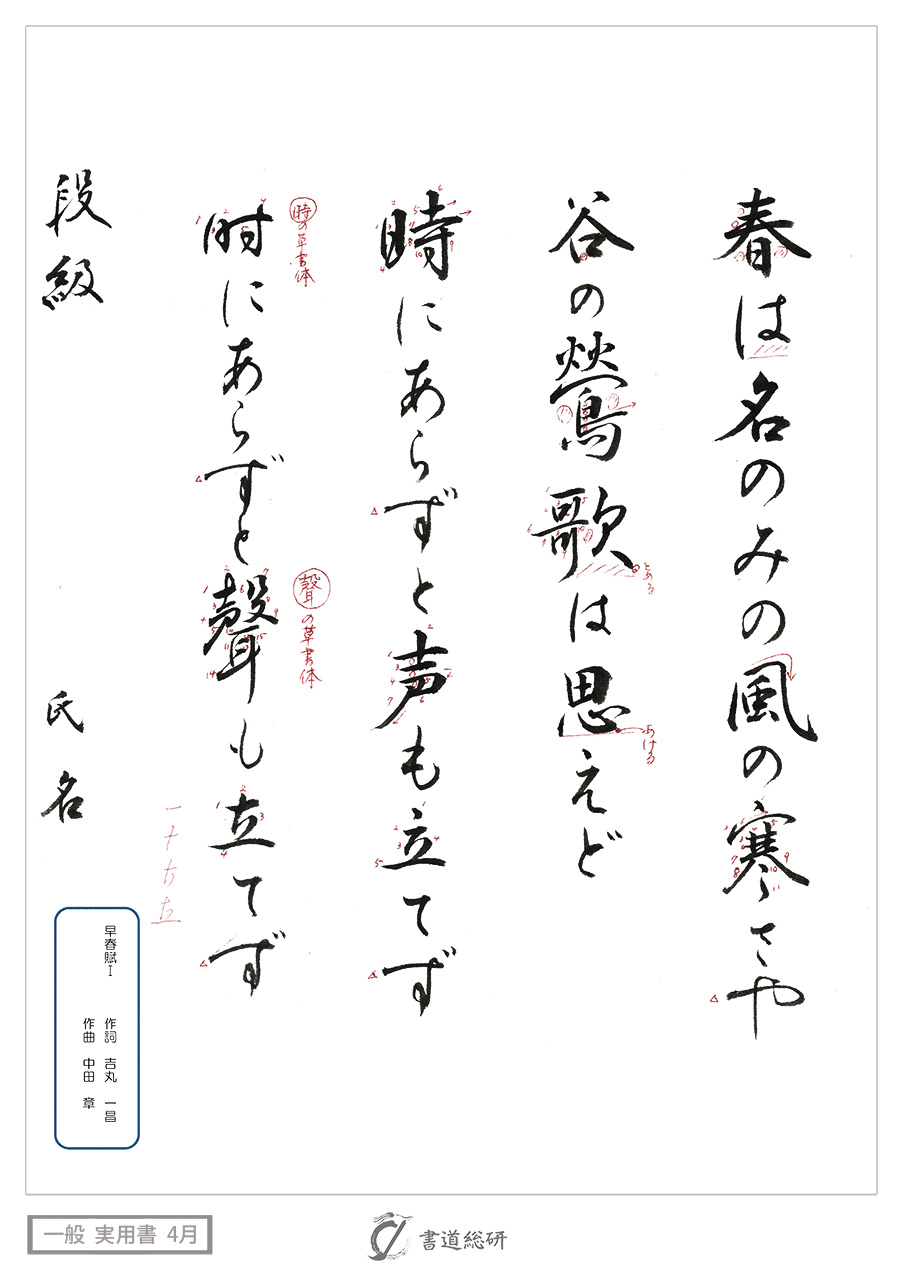 春は名のみの風の寒さや
谷の鶯歌は思えど
とある
あける
時にあらずと声も立てず
時の草書体
聲の草書体
時にあらずと聲も立てず
一ナ左左
段級 氏名
早春賦Ⅰ 作詞 吉丸 一昌
作曲 中田 章
一般 実用書 4月
書道総研